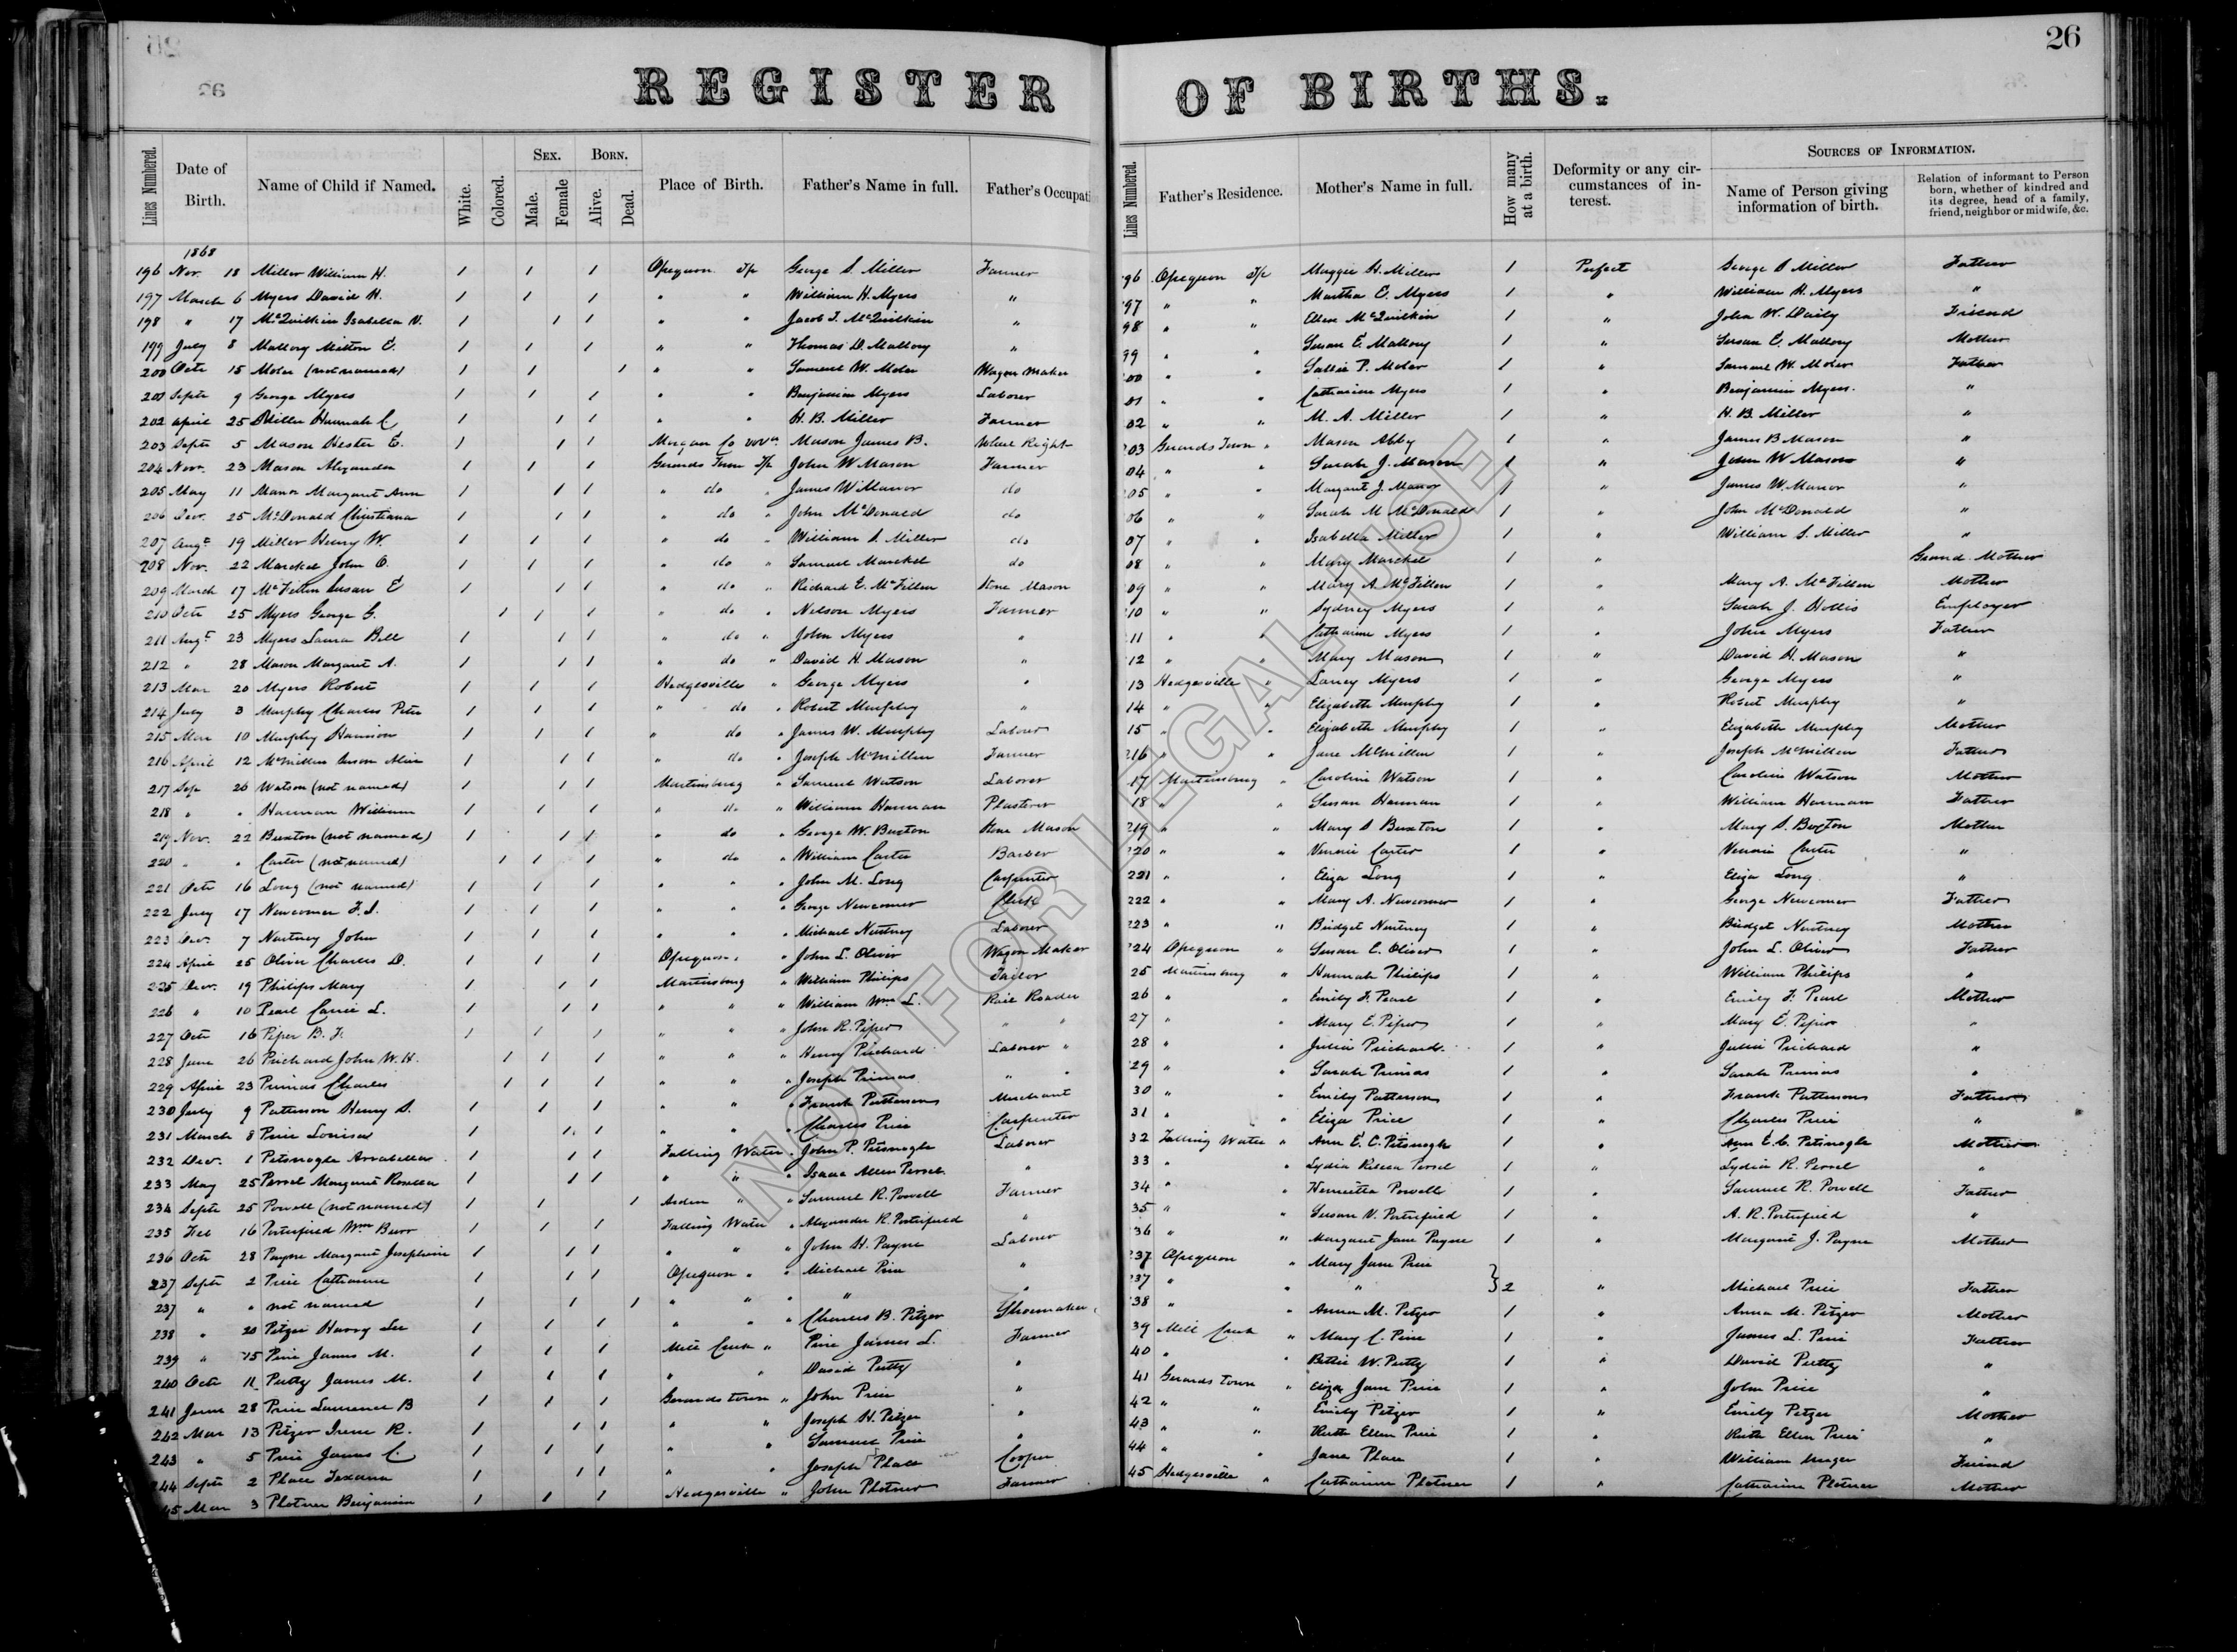 26
REGISTER OF BIRTHS.
Lines Numbered. Date of Birth. Name of Child if Named. White. Colored. Sex. Male. Female Born. Alive. Dead. Place of Birth. Father's Name in full. Father's Occupati Lines Numbered. Father's Residence. Mother's Name in full. How many at a birth. Deformity or any circumstances of interest. Sources of Information. Name of Person giving information of birth. Relation of informant to Person born, whether of kindred and its degree, head of a family, friend, neighbor or midwife, &c.
1868
196 Nov. 18 Miller William H. 1 1 1 Opequon T/p George S. Miller Farmer 96 Opequon T/p Maggie H. Miller 1 Perfect George S Miller Father
197 March 6 Myers David H. 1 1 1 " " William H. Myers " 97 " " Martha E. Myers 1 " William H. Myers "
198 " 17 McQuilkin Isabella V. 1 1 1 " " Jacob T. McQuilkin " 98 " " Ellen McQuilkin 1 " John W. Daily Friend
199 July 8 Mallory Milton E. 1 1 1 " " Thomas D. Mallory " 99 " " Susan E. Mallory 1 " Susan E. Mallory Mother
200 Octr 15 Moler (not named) 1 1 1 " " Samuel W. Moler Wagon Maker 00 " " Sallie P. Moler 1 " Samuel W. Moler Father
201 Septr 9 George Myers 1 1 1 " " Benjamin Myers Laborer 01 " " Catharine Myers 1 " Benjamin Myers. "
202 April 25 Miller Hannah C 1 1 1 " " H. B. Miller Farmer 02 " " M. A. Miller 1 " H. B. Miller "
203 Septr 5 Mason Hester E. 1 1 1 Morgan Co Mason James B. Wheel Right 203 Gerards Town " Mason Abby 1 " James B Mason "
204 Nov. 23 Mason Alexander 1 1 1 Gerards Town T/p John W Mason Farmer 04 " " Sarah J. Mason 1 " John W Mason "
205 May 11 Manor Margaret Ann 1 1 1 " do " James W Manor do 205 " " Margaret J. Manor 1 " James W. Manor "
206 Decr. 25 McDonald Christiana 1 1 1 " do " John McDonald do 06 " " Sarah M McDonald 1 " John McDonald "
207 Augt 19 Miller Henry W. 1 1 1 " do " William S. Miller do 07 " " Isabella Miller 1 " William S. Miller "
208 Nov. 22 Marckel John O. 1 1 1 " do " Samuel Marckel do 08 " " Mary Marckel 1 " Grand Mother
209 March 17 McFillen Susan E 1 1 1 " do " Richard E. McFillen Stone Mason 09 " " Mary A. McFillen 1 " Mary A. McFillen Mother
210 Octr 25 Myers George G. 1 1 1 " do " Nelson Myers Farmer 10 " " Sydney Myers 1 " Sarah J. Hollis Employer
211 Augt 23 Myers Laura Bell 1 1 1 " do " John Myers " 11 " " Catharine Myers 1 " John Myers Father
212 " 28 Mason Margaret A. 1 1 1 " do " David H. Mason " 12 " " Mary Mason 1 " David H. Mason "
213 Mar 20 Myers Robert 1 1 1 Hedgesville " George Myers " 13 Hedgesville " Laney Myers 1 " George Myers "
214 July 3 Murphy Charles Peter 1 1 1 " do " Robert Murphy " 14 " " Elizabeth Murphy 1 " Robert Murphy "
215 Mar 10 Murphy Harrison 1 1 1 " do " James W. Murphy Laborer 15 " " Elizabeth Murphy 1 " Elizabeth Murphy Mother
216 April 12 McMillen Alice 1 1 1 " do " Joseph McMillen Farmer 216 " " Jane McMillen 1 " Joseph McMillen Father
217 Sep 26 Watson (not named) 1 1 1 Martinsburg " Samuel Watson Laborer 17 Martinsburg " Caroline Watson 1 " Caroline Watson Mother
218 " " Harman William 1 1 1 " do " William Harman Plasterer 18 " " Susan Harman 1 " William Harman Father
219 Nov. 22 Buxton (not named) 1 1 1 " do " George W. Buxton Stone Mason 219 " " Mary S Buxton 1 " Mary S. Buxton Mother
220 " " Carter (not named) 1 1 1 " do " William Carter Barber 220 " " Vennie Carter 1 " Vennie Carter "
221 Octr 16 Long (not named) 1 1 1 " " " John M. Long Carpenter 221 " " Eliza Long 1 " Eliza Long "
222 July 17 Newcomer F. I. 1 1 1 " " " George Newcomer Clerk 222 " " Mary A. Newcomer 1 " George Newcomer Father
223 Decr. 7 Nurtney John 1 1 1 " " " Michael Nurtney Laborer 223 " " Bridget Nurtney 1 " Bridget Nurtney Mother
224 April 25 Oliver Charles D. 1 1 1 Opequon " " John L. Oliver Wagon Maker 224 Opequon " Susan C. Oliver 1 " John L. Oliver Father
225 Decr. 19 Philips Mary 1 1 1 Martinsburg " William Philips Tailor 25 Martinsburg " Hannah Philips 1 " William Philips "
226 " 10 Pearl Carrie L. 1 1 1 " " " William Wm L. Rail Roader 26 " " Emily F. Pearl 1 " Emily F. Pearl Mother
227 Octr 16 Piper B. F. 1 1 1 " " " John R. Piper " " 27 " " Mary E. Piper 1 " Mary E. Piper "
228 June 26 Prichard John W. H. 1 1 1 " " " Henry Prichard Laborer " 28 " " Julia Prichard 1 " Julia Prichard "
229 April 23 Primas Charles 1 1 1 " " " Joseph Primas " " 29 " " Sarah Primas 1 " Sarah Primas "
230 July 9 Patterson Henry S. 1 1 1 " " " Frank Patterson Merchant 30 " " Emily Patterson 1 " Frank Patterson Father
231 March 8 Price Louisa 1 1 1 " " " Charles Price Carpenter 31 " " Eliza Price 1 " Charles Price "
232 Decr. 1 Petsnogle Annabella 1 1 1 Falling Water " John P. Petsnogle Laborer 32 Falling Water " Ann E. C. Petsnogle 1 " Ann E. C. Petsnogle Mother
233 May 25 Persel Margaret Rosella 1 1 1 " " " Isaac Allen Persel " 33 " " Lydia Rebeca Persel 1 " Lydia R. Persel "
234 Septr 25 Powell (not named) 1 1 1 Arden " " Samuel R. Powell Farmer 34 " " Henrietta Powell 1 " Samuel R. Powell Father
235 Feb 16 Porterfield Wm Burr 1 1 1 Falling Water " Alexander R. Porterfield " 35 " " Susan V. Porterfield 1 " A. R. Porterfield "
236 Octr 28 Payne Margaret Josephine 1 1 1 " " " John H. Payne Laborer 36 " " Margaret Jane Payne 1 " Margaret J. Payne Mother
237 Septr 2 Price Catharine 1 1 1 Opequon " " Michael Price " 237 Opequon " Mary Jane Price
237 " " not named 1 1 1 " " " " " 237 " " " } 2 " Michael Price Father
238 " 20 Pitzer Harry Lee 1 1 1 " " " Charles B. Pitzer Shoemaker 38 " " Anna M. Pitzer 1 " Anna M. Pitzer Mother
239 " 15 Price James M. 1 1 1 Mill Creek " Price James L. Farmer 39 Mill Creek " Mary C. Price 1 " James L. Price Father
240 Octr 11 Putty James M. 1 1 1 " " David Putty " 40 " " Bettie W. Putty 1 " David Putty "
241 June 28 Price Lawrence B 1 1 1 Gerardstown " John Price " 41 Gerards town " Eliza Jane Price 1 " John Price "
242 Mar 13 Pitzer Irene R. 1 1 1 " " Joseph H. Pitzer " 42 " " Emily Pitzer 1 " Emily Pitzer Mother
243 " 5 Price James C. 1 1 1 " " Samuel Price " 43 " " Ruth Ellen Price 1 " Ruth Ellen Price "
244 Septr 2 Place Texana 1 1 1 " " Joseph Place Cooper 44 " " Jane Place 1 " William Friend
45 Mar 3 Plotner Benjamin 1 1 1 Hedgesville " John Plotner Farmer 45 Hedgesville " Catharine Plotner 1 " Catharine Plotner Mother
NOT FOR LEGAL USE